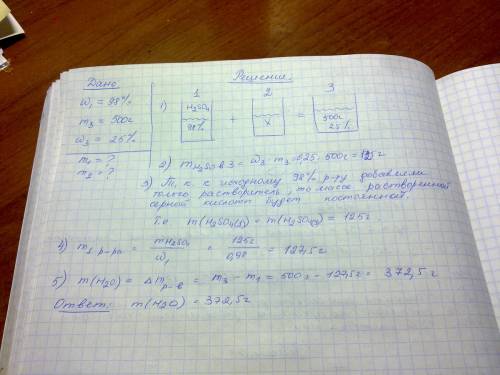 Дано
ω₁ = 98%
m₃ = 500г
ω₃ = 25%
m₁ = ?
m₂ = ?
Решение:
1)
1
2
3
H₂SO₄
98%
+
x
=
500г
25%
2) mH₂SO₄ в 3 = ω₃ · m₃ = 0,25 · 500г = 125г
3) Т.к. к исходному 98% р-ру добавляли
только растворитель, то масса растворенной
серной кислоты будет постоянной.
Т.е m(H₂SO₄(1)) = m(H₂SO₄(3)) = 125г
4) m₁ р-ра = mH₂SO₄ / ω₁ = 125г / 0,98 = 127,5г
5) m(H₂O) = Δm р-в = m₃ - m₁ = 500г - 127,5г = 372,5г
Ответ: m(H₂O) = 372,5г